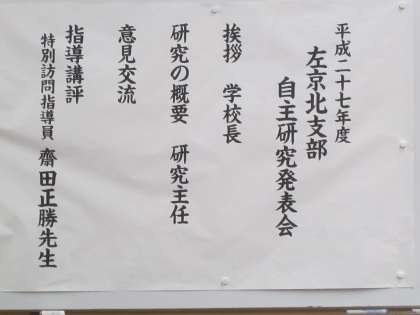 平成二十七年度
左京北支部
自主研究発表会
挨拶 学校長
研究の概要 研究主任
意見交流
指導講評
特別訪問指導員 齋田正勝先生